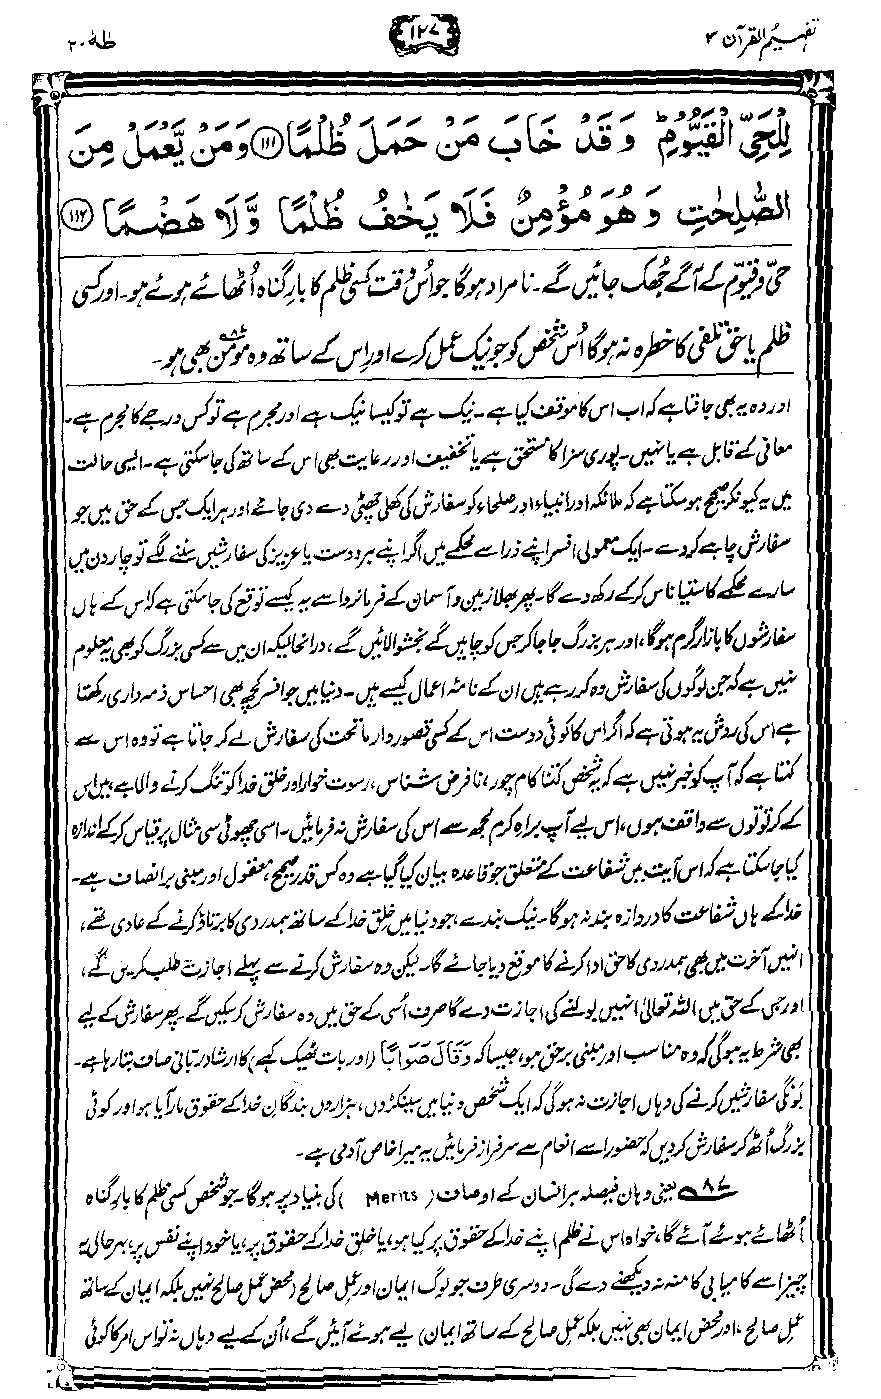 تفہیم القرآن ۳
۱۲۷
طٰہٰ ۲۰
لِلْحَيِّ الْقَيُّوْمِ ؕ وَقَدْ خَابَ مَنْ حَمَلَ ظُلْمًا ﴿۱۱۱﴾ وَمَنْ يَّعْمَلْ مِنَ
الصّٰلِحٰتِ وَهُوَ مُؤْمِنٌ فَلَا يَخٰفُ ظُلْمًا وَّلَا هَضْمًا ﴿۱۱۲﴾
حیّ و قیّوم کے آگے جُھک جائیں گے۔ نامراد ہوگا جو اُس وقت کسی ظلم کا بارِ گناہ اُٹھائے ہوئے ہو۔ اور کسی
ظلم یا حق تلفی کا خطرہ نہ ہوگا اُس شخص کو جو نیک عمل کرے اور اِس کے ساتھ وہ مومن بھی ہو۔ ۸۷
اور وہ یہ بھی جانتا ہے کہ اب اس کا موقف کیا ہے۔ نیک ہے تو کیسا نیک ہے اور مجرم ہے تو کس درجے کا مجرم ہے۔
معافی کے قابل ہے یا نہیں۔ پوری سزا کا مستحق ہے یا تخفیف اور رعایت بھی اس کے ساتھ کی جا سکتی ہے۔ ایسی حالت
میں یہ کیونکر صحیح ہو سکتا ہے کہ ملائکہ اور انبیاء اور صلحاء کو سفارش کی کھلی چھٹی دے دی جائے اور ہر ایک جس کے حق میں جو
سفارش چاہے کر دے۔ ایک معمولی افسر اپنے ذرا سے محکمے میں اگر اپنے ہر دوست یا عزیز کی سفارشیں سننے لگے تو چار دن میں
سارے محکمے کا ستیاناس کر کے رکھ دے گا۔ پھر بھلا زمین و آسمان کے فرمانروا سے یہ کیسے توقع کی جا سکتی ہے کہ اس کے ہاں
سفارشوں کا بازار گرم ہوگا، اور ہر بزرگ جا جا کر جس کو چاہیں گے بخشوا لائیں گے، درانحالیکہ ان میں سے کسی بزرگ کو بھی یہ معلوم
نہیں ہے کہ جن لوگوں کی سفارش وہ کر رہے ہیں ان کے نامۂ اعمال کیسے ہیں۔ دنیا میں جو افسر کچھ بھی احساس ذمہ داری رکھتا
ہے اس کی روش یہ ہوتی ہے کہ اگر اس کا کوئی دوست اس کے کسی قصور وار ماتحت کی سفارش لے کر جاتا ہے تو وہ اس سے
کہتا ہے کہ آپ کو خبر نہیں ہے کہ یہ شخص کتنا کام چور، نافرض شناس، رشوت خوار اور خلقِ خدا کو تنگ کرنے والا ہے، میں اس
کے کرتوتوں سے واقف ہوں، اس لیے آپ براہ کرم مجھ سے اس کی سفارش نہ فرمائیں۔ اسی چھوٹی سی مثال پر قیاس کر کے اندازہ
کیا جا سکتا ہے کہ اس آیت میں شفاعت کے متعلق جو قاعدہ بیان کیا گیا ہے وہ کس قدر صحیح، معقول اور مبنی بر انصاف ہے۔
خدا کے ہاں شفاعت کا دروازہ بند نہ ہوگا۔ نیک بندے، جو دنیا میں خلق خدا کے ساتھ ہمدردی کا برتاؤ کرنے کے عادی تھے،
انہیں آخرت میں بھی ہمدردی کا حق ادا کرنے کا موقع دیا جائے گا۔ لیکن وہ سفارش کرنے سے پہلے اجازت طلب کریں گے،
اور جس کے حق میں اللہ تعالیٰ انہیں بولنے کی اجازت دے گا صرف اُسی کے حق میں وہ سفارش کر سکیں گے۔ پھر سفارش کے لیے
بھی شرط یہ ہوگی کہ وہ مناسب اور مبنی بر حق ہو، جیسا کہ وَقَالَ صَوَابًا (اور بات ٹھیک کہے) کا ارشاد ربّانی صاف بتا رہا ہے۔
بَونگی سفارشیں کرنے کی وہاں اجازت نہ ہوگی کہ ایک شخص دنیا میں سینکڑوں، ہزاروں بندگانِ خدا کے حقوق مار آیا ہو اور کوئی
بزرگ اُٹھ کر سفارش کر دیں کہ حضور اسے انعام سے سرفراز فرمائیں یہ میرا خاص آدمی ہے۔
۸۷ یعنی وہاں فیصلہ ہر انسان کے اوصاف (Merits) کی بنیاد پر ہوگا۔ جو شخص کسی ظلم کا بار گناہ
اُٹھائے ہوئے آئے گا، خواہ اس نے ظلم اپنے خدا کے حقوق پر کیا ہو، یا خلق خدا کے حقوق پر، یا خود اپنے نفس پر، بہرحال یہ
چیز اسے کامیابی کا منہ نہ دیکھنے دے گی۔ دوسری طرف جو لوگ ایمان اور عمل صالح (محض عمل صالح نہیں بلکہ ایمان کے ساتھ
عمل صالح، اور محض ایمان بھی نہیں بلکہ عمل صالح کے ساتھ ایمان) لیے ہوئے آئیں گے، اُن کے لیے وہاں نہ تو اس امر کا کوئی